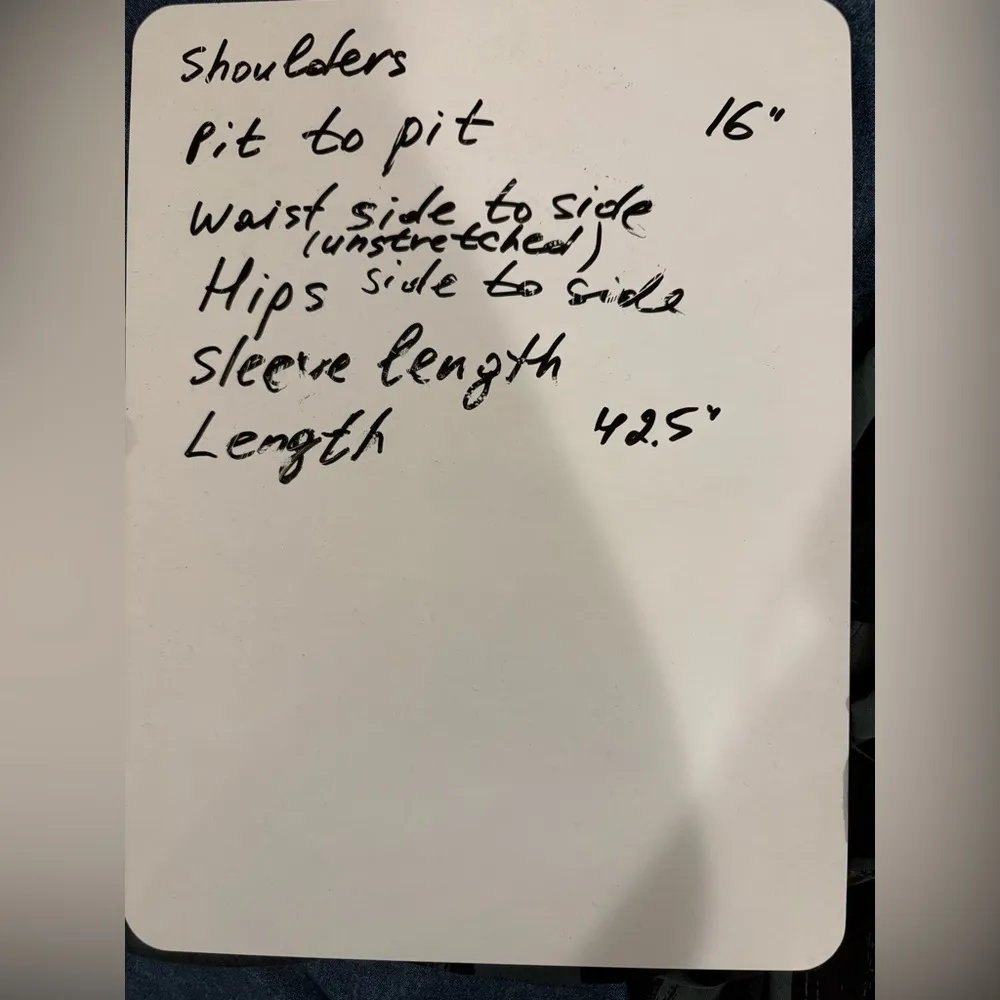 Shoulders
Pit to pit 16"
Waist side to side
(unstretched)
Hips side to side
Sleeve length
Length 42.5"